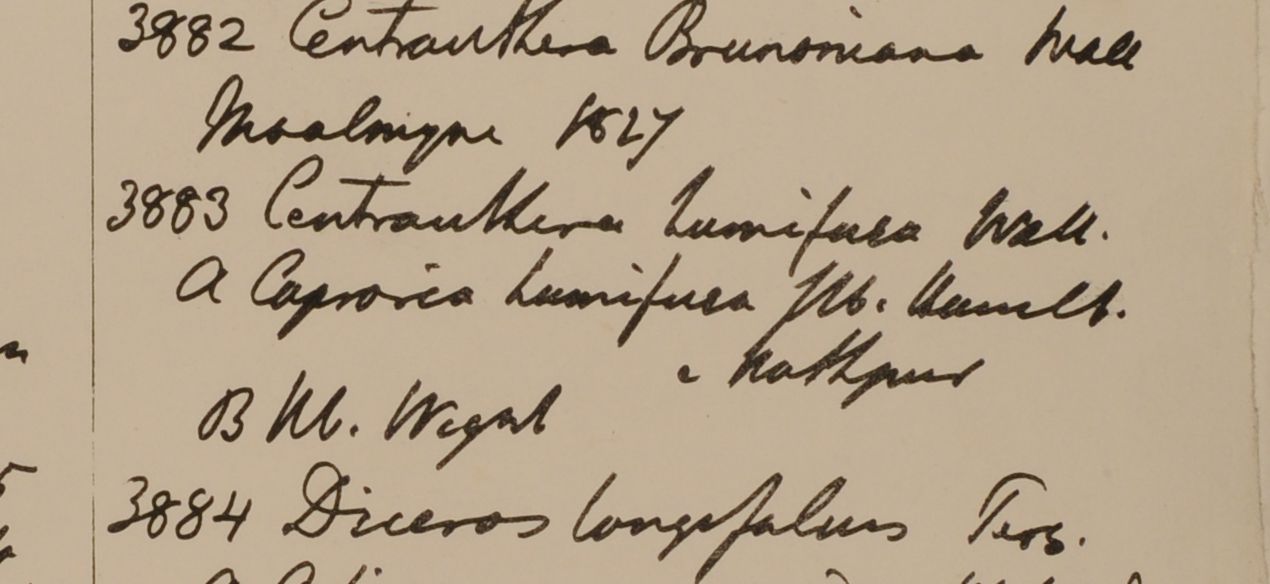 3882 Centranthera Brunoniana Wall
Moalmyne 1827
3883 Centranthera humifusa Wall.
A Capraria humifusa Hb. Hamilt.
e Nathpur
B Hb. Wight
3884 Diceros longifolius Pers.